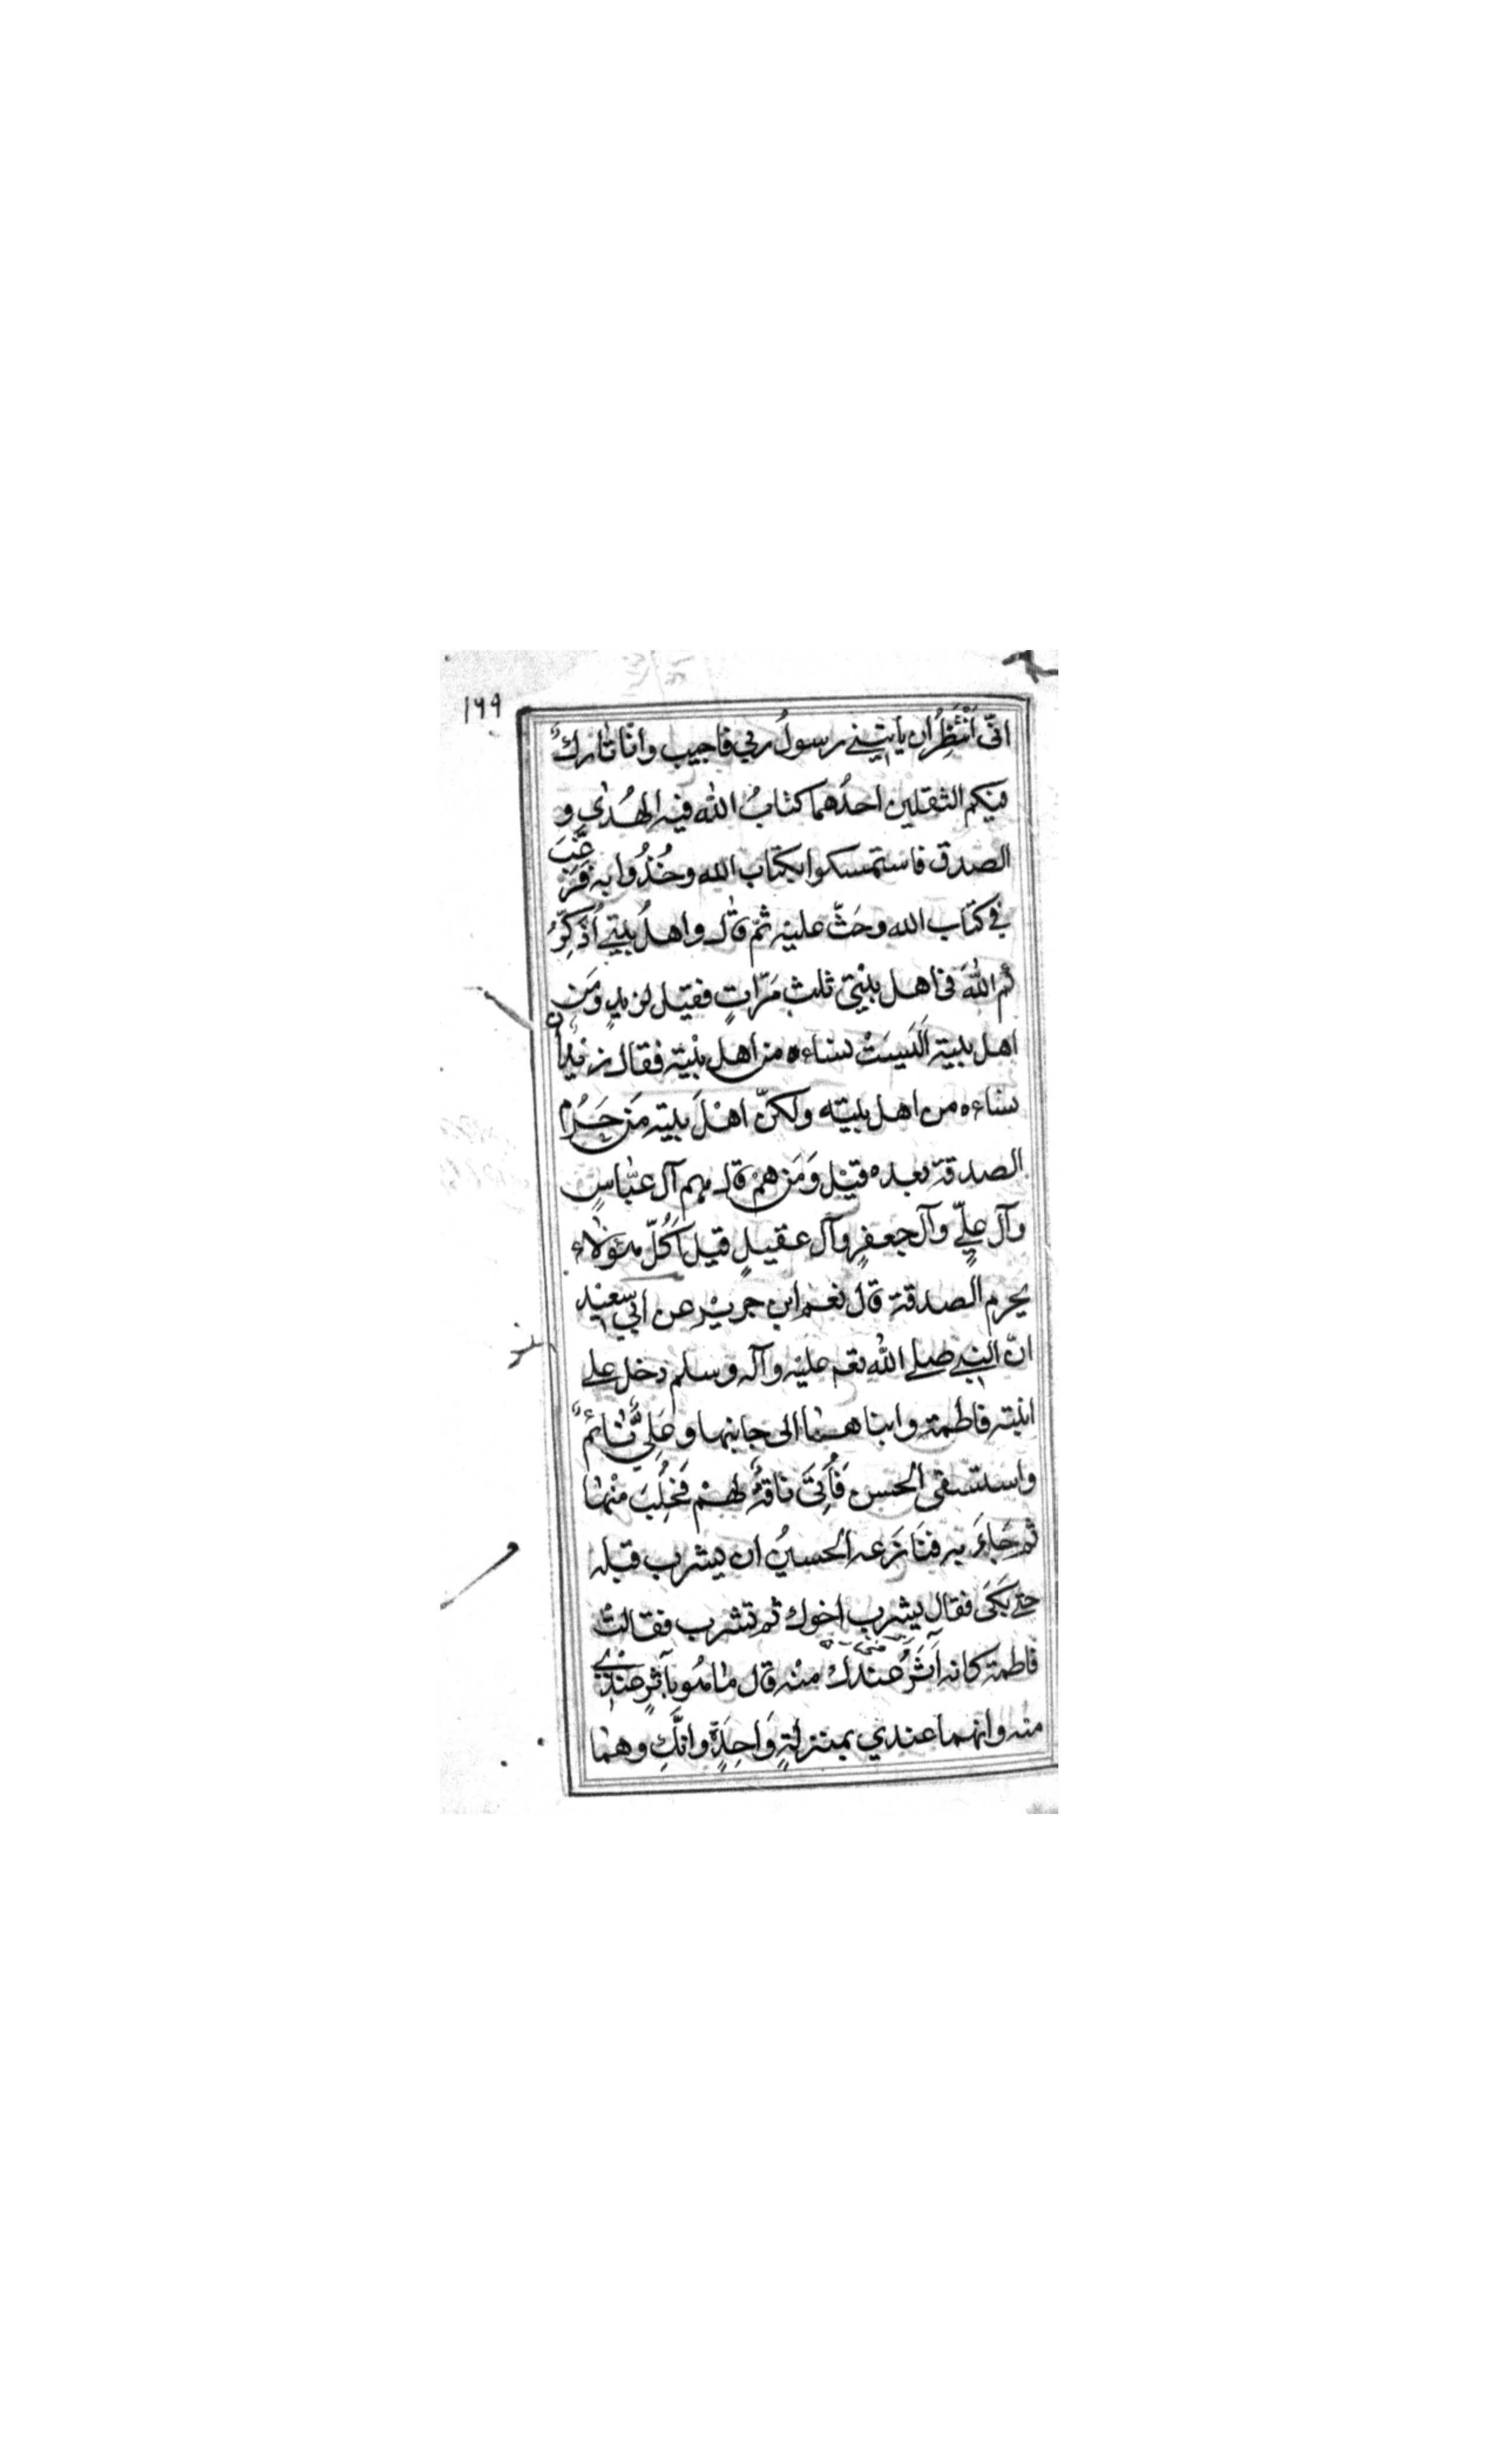 ١٦٩
انّى اَنْتَظِرُ ان ياتينے رسولُ ربي فاجيب وانّا تارك
فيكم الثقلين احدُهما كتابُ الله فيه الهُدٰى و
الصدق فاستمسكوا بكتاب الله وخُذُوا به فَرَغَّبَ
فى كتاب الله وحَثّ عليه ثمّ قال واهلُ بيتي اُذَكِّرُ
كم اللهَ فى اهل بيْتى ثلث مَرّاتٍ فقيل لزيدٍ ومَن
اهل بيته اَلَيسَتْ نساءه من اهل بيْته فقال زيدٌ انّ
نساءه من اهل بيته ولكنّ اهْلَ بيته مَن حَرُم
الصدقة بعده قيْل وَمَن همْ قال هم آل عبّاسٍ
وآل علِيّ وآل جعفرٍ وآل عقيلٍ قيل اَكُلّ هؤلاء
يحرم الصدقة قال نعم ابن جرير عن ابي سعيْد
انّ النبي صلے الله تعم عليْه وآله وسلم دخل علے
ابنته فاطمة وابناهما الى جانبها وعَلِيٌّ نائمٌ
واستسقى الحسن فَأتىَ ناقةً لهمْ فحَلَبَ منْها
ثم جَاءَ به فنَازعه الحسينُ ان يشرب قبله
حتے بَكَى فقال يشرب اخوك ثم تشرب فقالتْ
فاطمة كانه آثَرُ عنْدك منْه قال ما هُو بآثرٍ عنْدي
منه وانهما عندي بمنزلةٍ وَاحِدَةٍ وانّكِ وهما